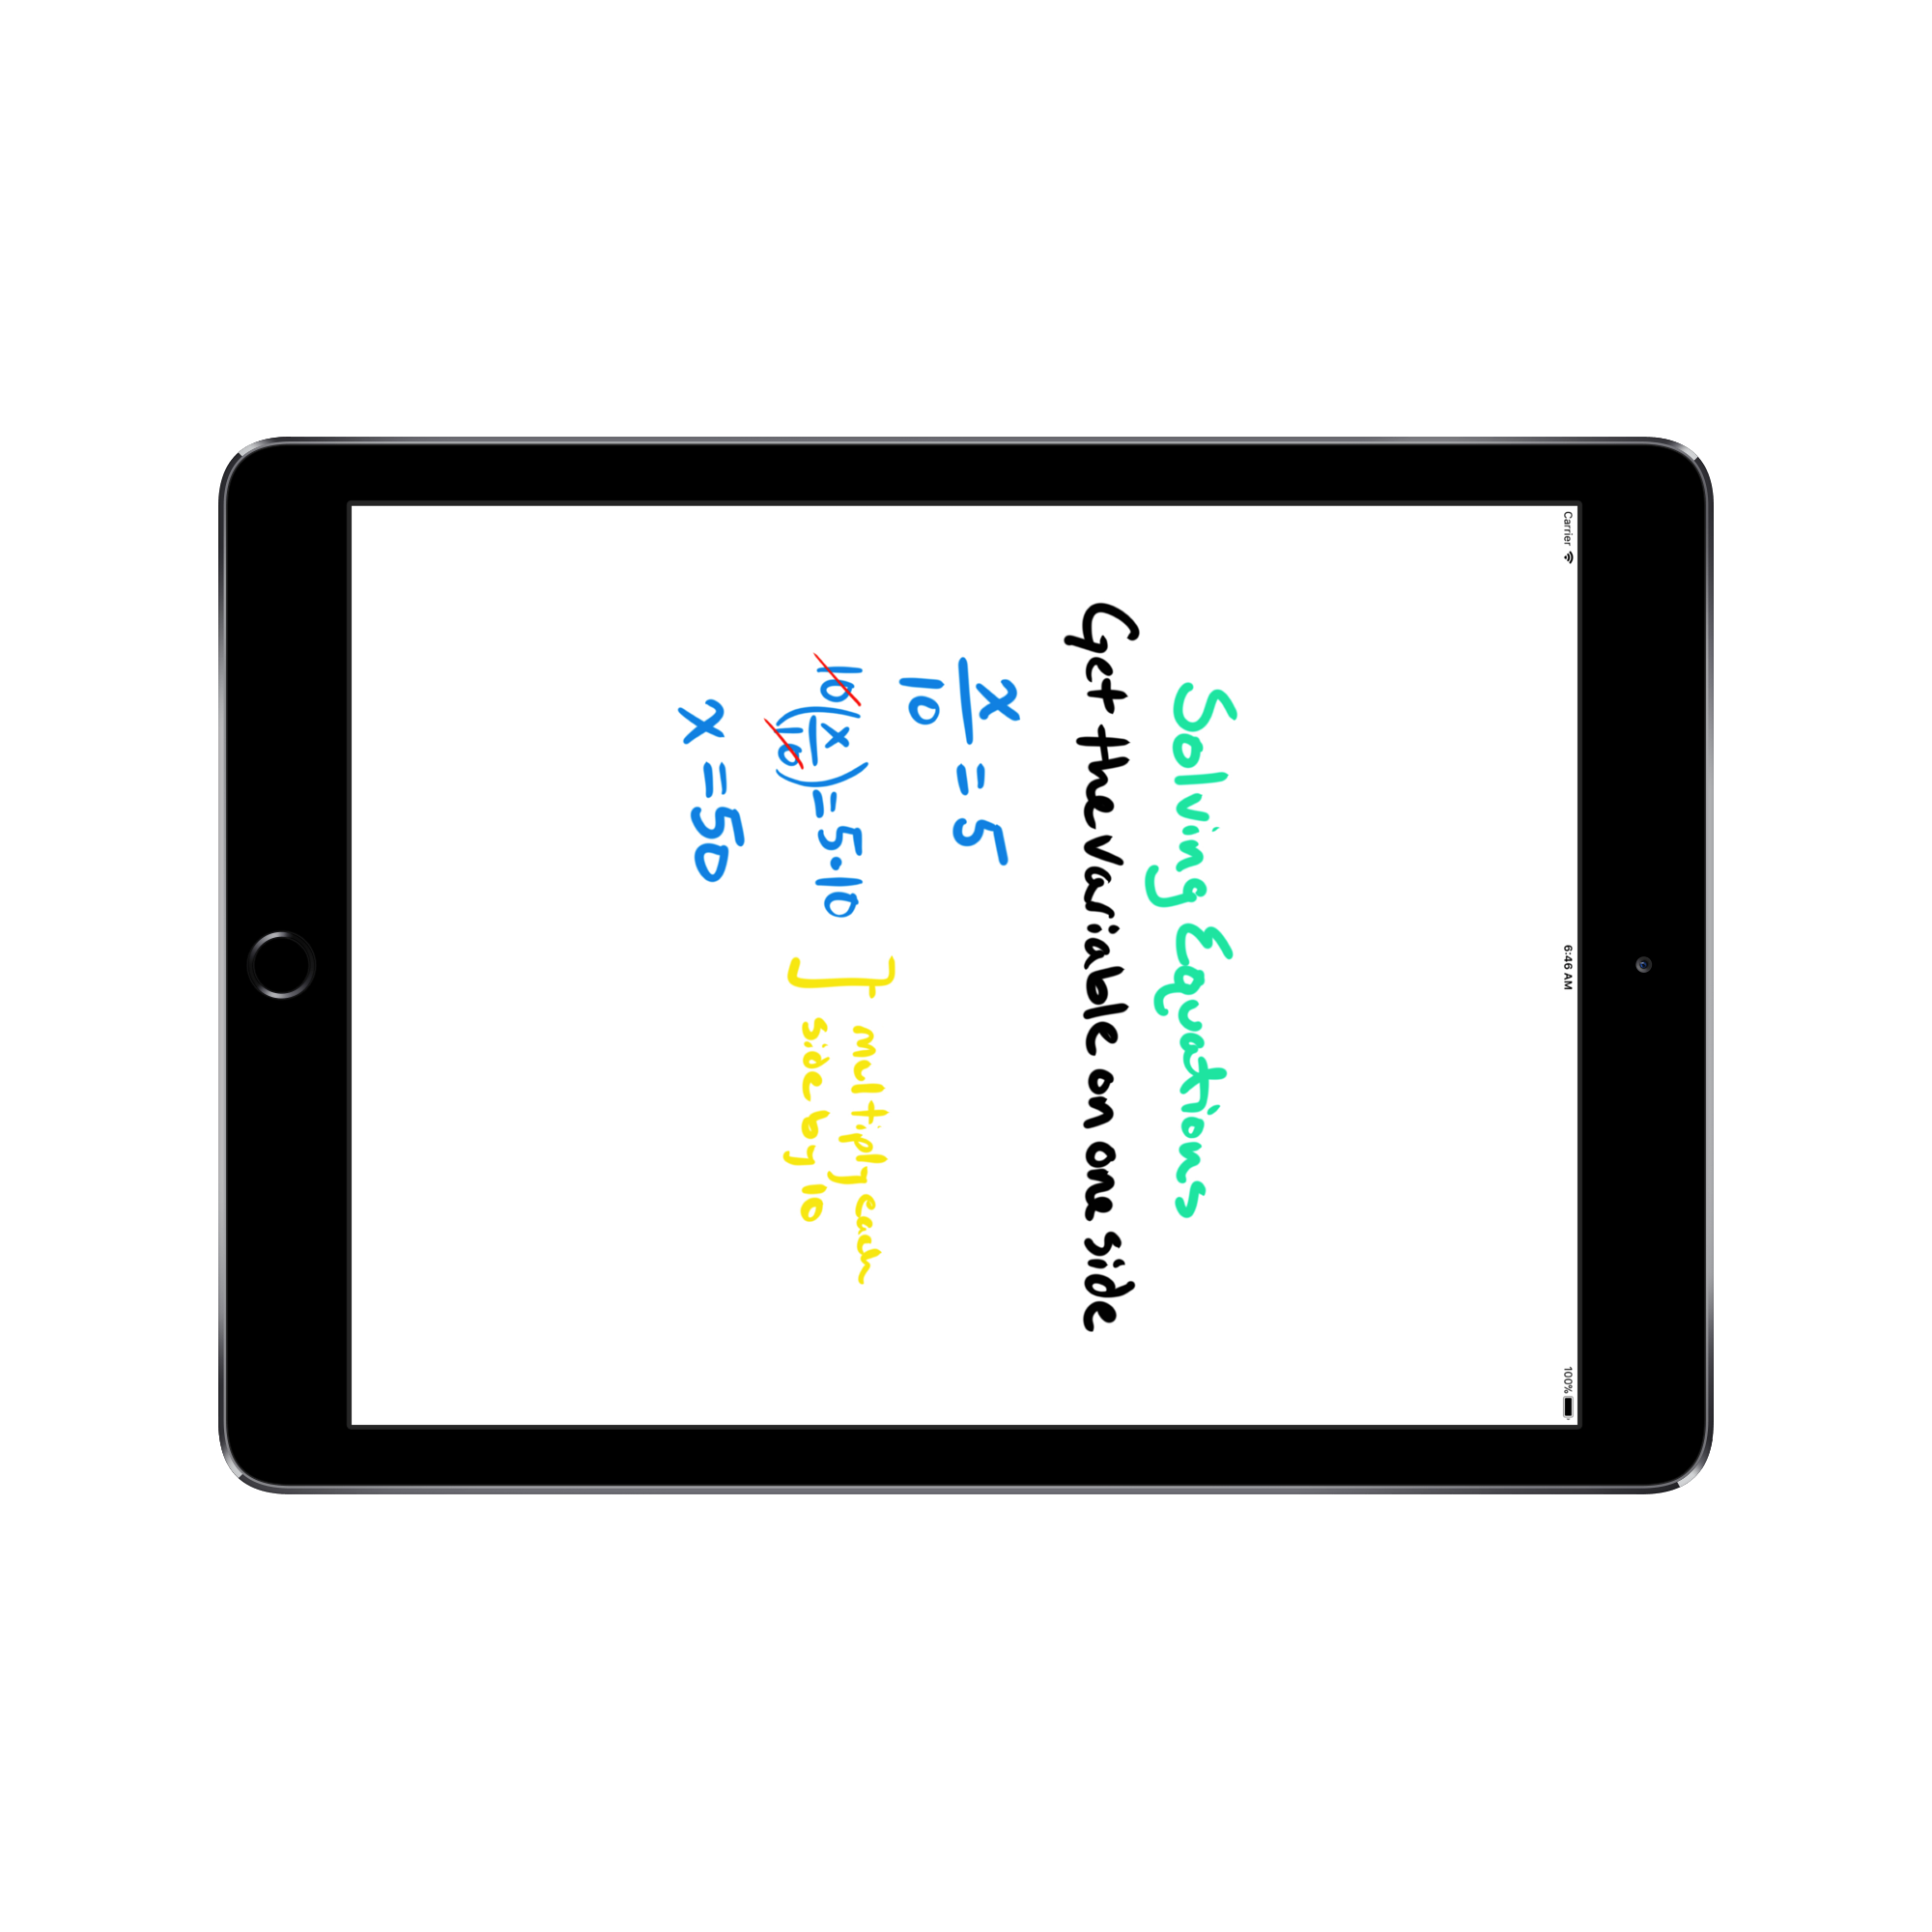 Carrier 6:46 AM 100%
Solving Equations
Get the variable on one side
x/10 = 5
10(x/10) = 5·10
multiply each
side by 10
x = 50